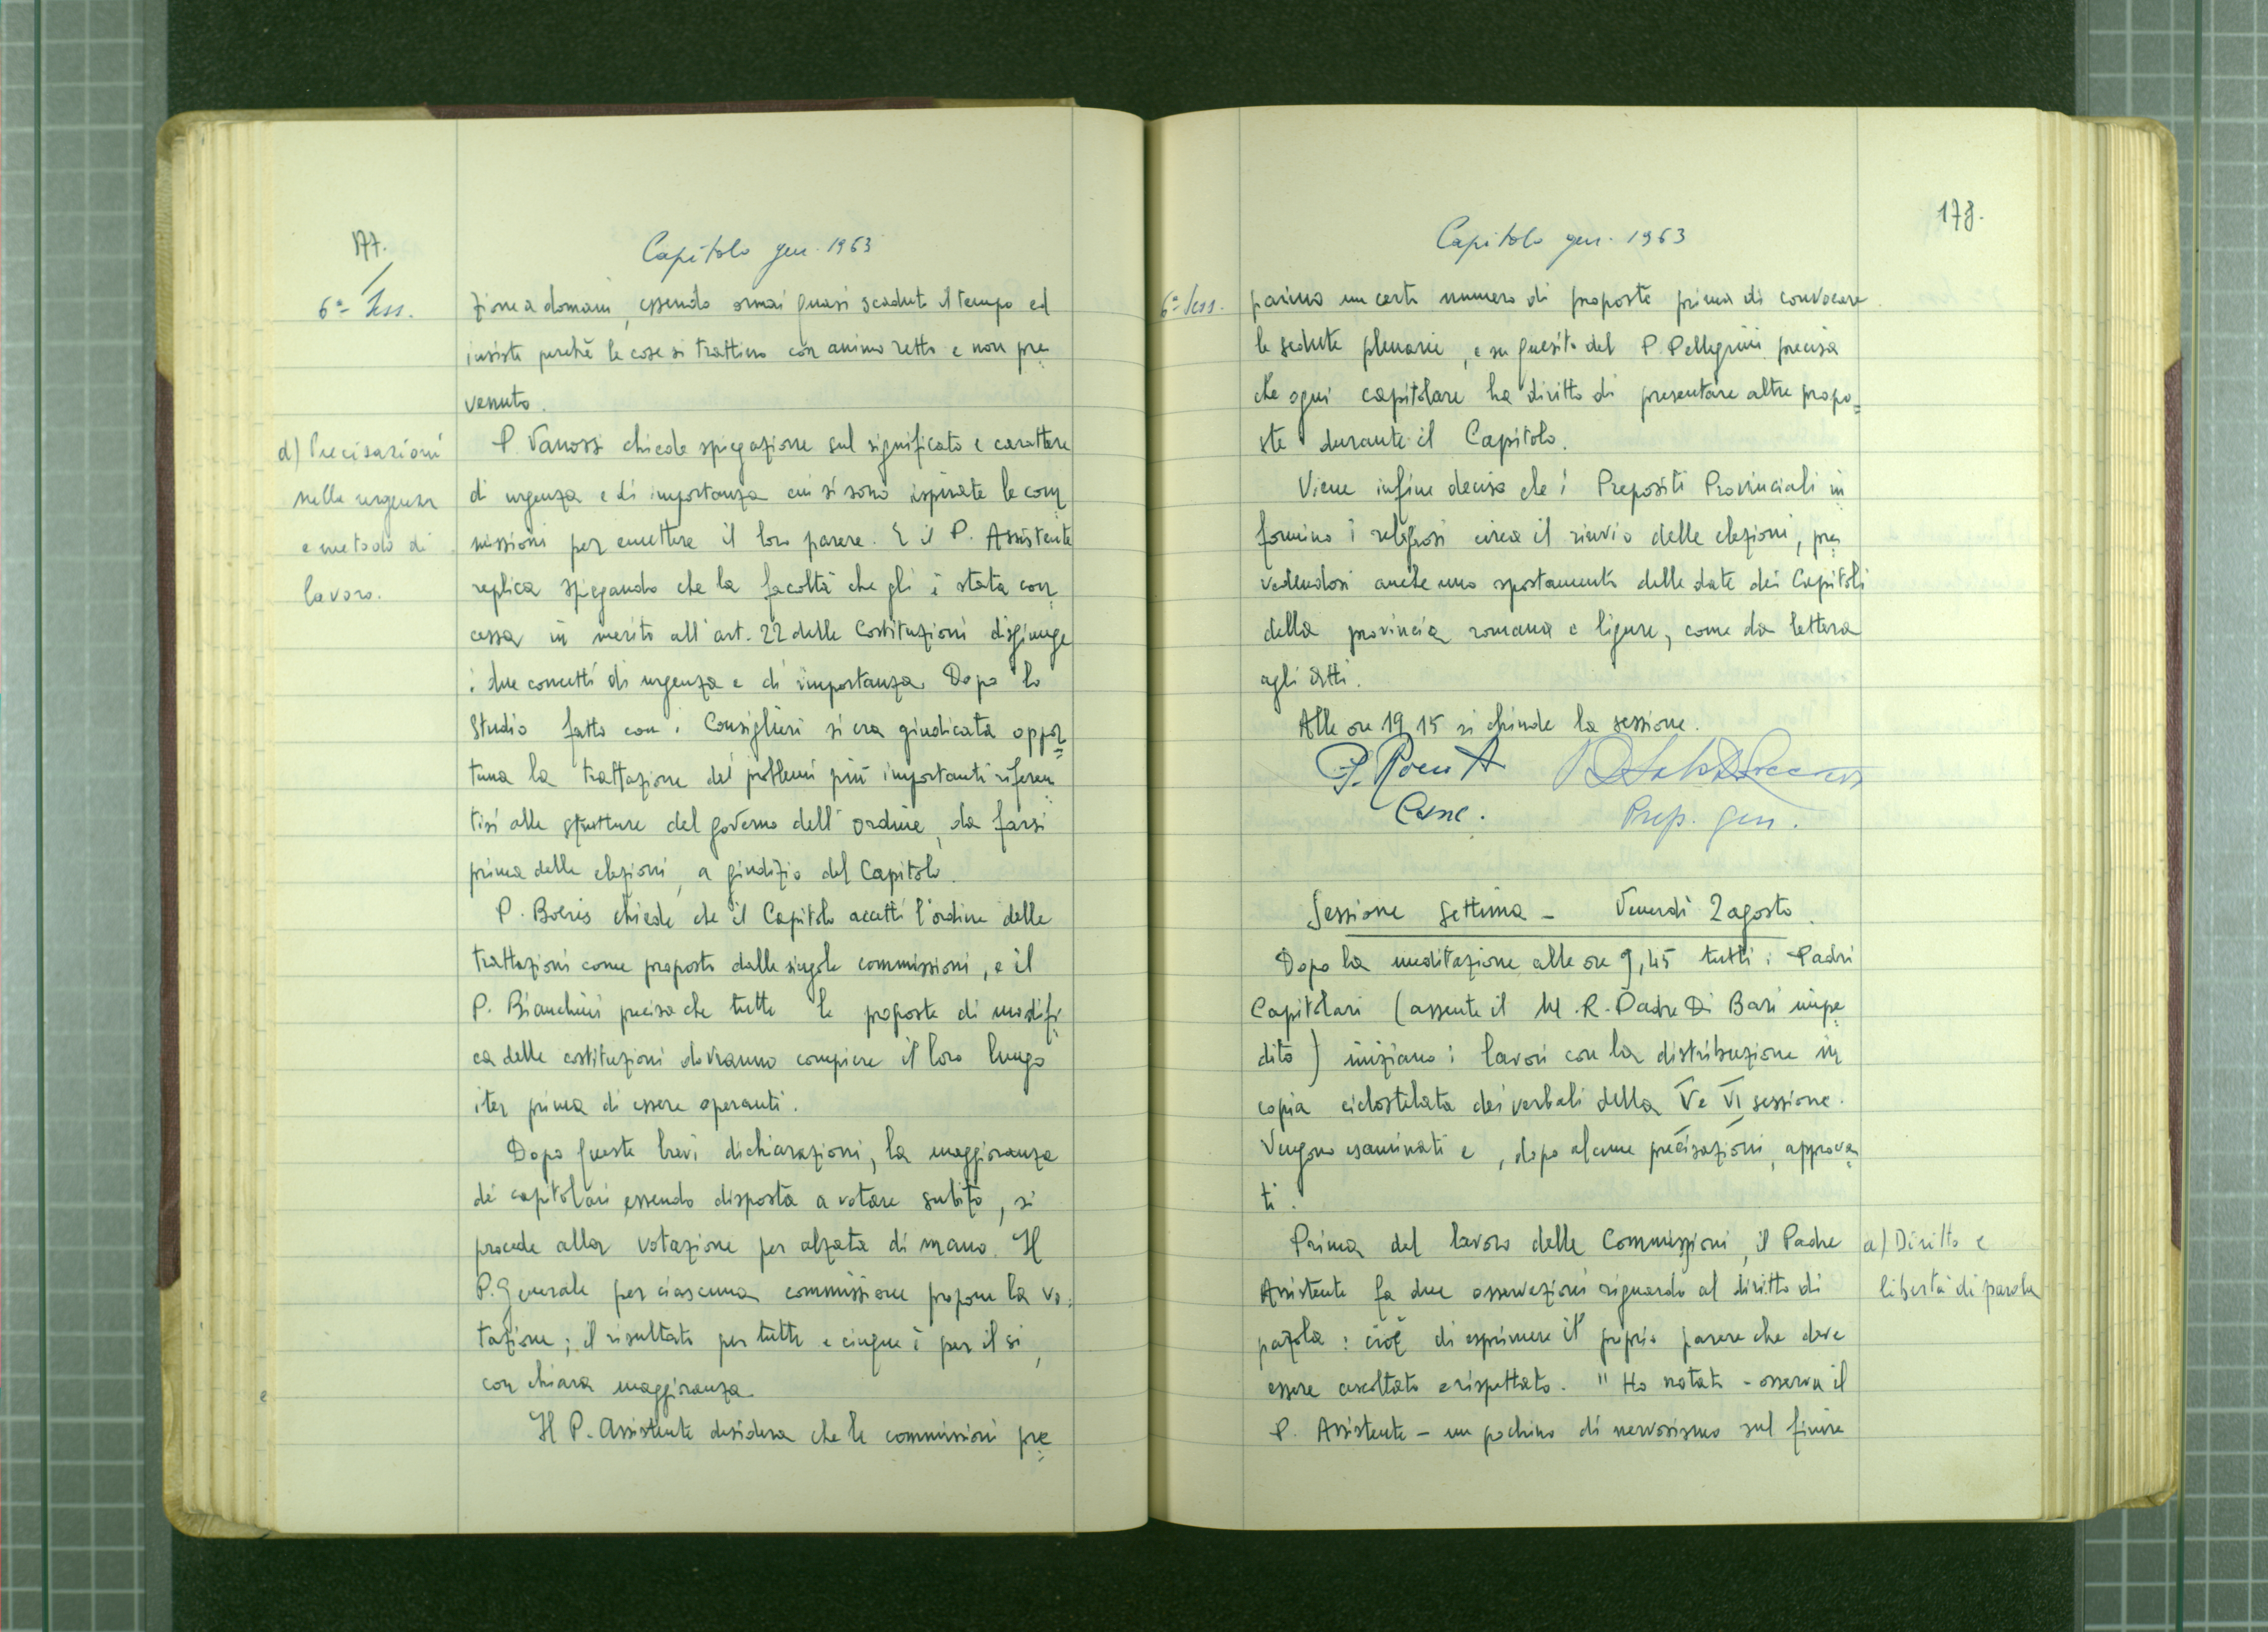 177.
Capitolo gen. 1963
6ª Sess.
zione a domani, essendo ormai quasi scaduto il tempo ed
insiste perchè le cose si trattino con animo retto e non pre=
venuto.
d) Precisazioni
nella urgenza
e metodo di
lavoro.
P. Vanossi chiede spiegazione sul significato e carattere
di urgenza e di importanza cui si sono ispirate le com=
missioni per emettere il loro parere. E il P. Assistente
replica spiegando che la facoltà che gli è stata con=
cessa in merito all'art. 22 delle Costituzioni disgiunge
i due concetti di urgenza e di importanza. Dopo lo
studio fatto con i Consiglieri si era giudicata oppor=
tuna la trattazione dei problemi più importanti riferen=
tisi alle strutture del governo dell'ordine, da farsi
prima delle elezioni, a giudizio del Capitolo.
P. Boeris chiede che il Capitolo accetti l'ordine delle
trattazioni come proposto dalle singole commissioni, e il
P. Bianchini precisa che tutte le proposte di modifi=
ca delle costituzioni dovranno compiere il loro lungo
iter prima di essere operanti.
Dopo queste brevi dichiarazioni, la maggioranza
dei capitolari essendo disposta a votare subito, si
procede alla votazione per alzata di mano. Il
P. Generale per ciascuna commissione propone la vo=
tazione; il risultato per tutte e cinque è per il si,
con chiara maggioranza.
Il P. Assistente desidera che le commissioni pre=
178.
Capitolo gen. 1963
6ª Sess.
parino un certo numero di proposte prima di convocare
le sedute plenarie, e su quesito del P. Pellegrini precisa
che ogni capitolare ha diritto di presentare altre propo=
ste durante il Capitolo.
Viene infine deciso che i Prepositi Provinciali in=
formino i religiosi circa il rinvio delle elezioni, pre=
vedendosi anche uno spostamento delle date dei Capitoli
della provincia romana e ligure, come da lettera
agli atti.
Alle ore 19,15 si chiude la sessione.
Canc. Prep. gen.
Sessione Settima - Venerdì 2 agosto.
Dopo la meditazione alle ore 9,45 tutti i Padri
Capitolari (assente il M.R. Padre Di Bari impe=
dito) iniziano i lavori con la distribuzione in
copia ciclostilata dei verbali della V e VI sessione.
Vengono esaminati e, dopo alcune precisazioni, approva=
ti.
a) Diritto e
libertà di parola
Prima del lavoro delle Commissioni, il Padre
Assistente fa due osservazioni riguardo al diritto di
parola: cioè di esprimere il proprio parere che deve
essere ascoltato e rispettato. "Ho notato - osserva il
P. Assistente - un pochino di nervosismo sul finire